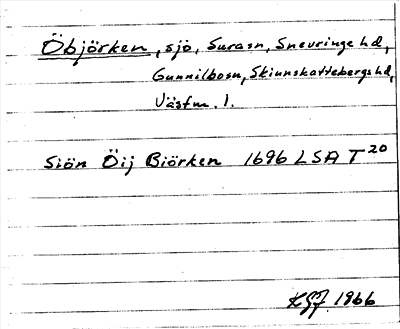 Öbjörken, sjö, Surasn, Snevringe hd,
Gunnilbosn, Skinnskattebergs hd,
Västm. l.
Siön Öij Biörken 1696 LSA T 20
KGJ. 1966